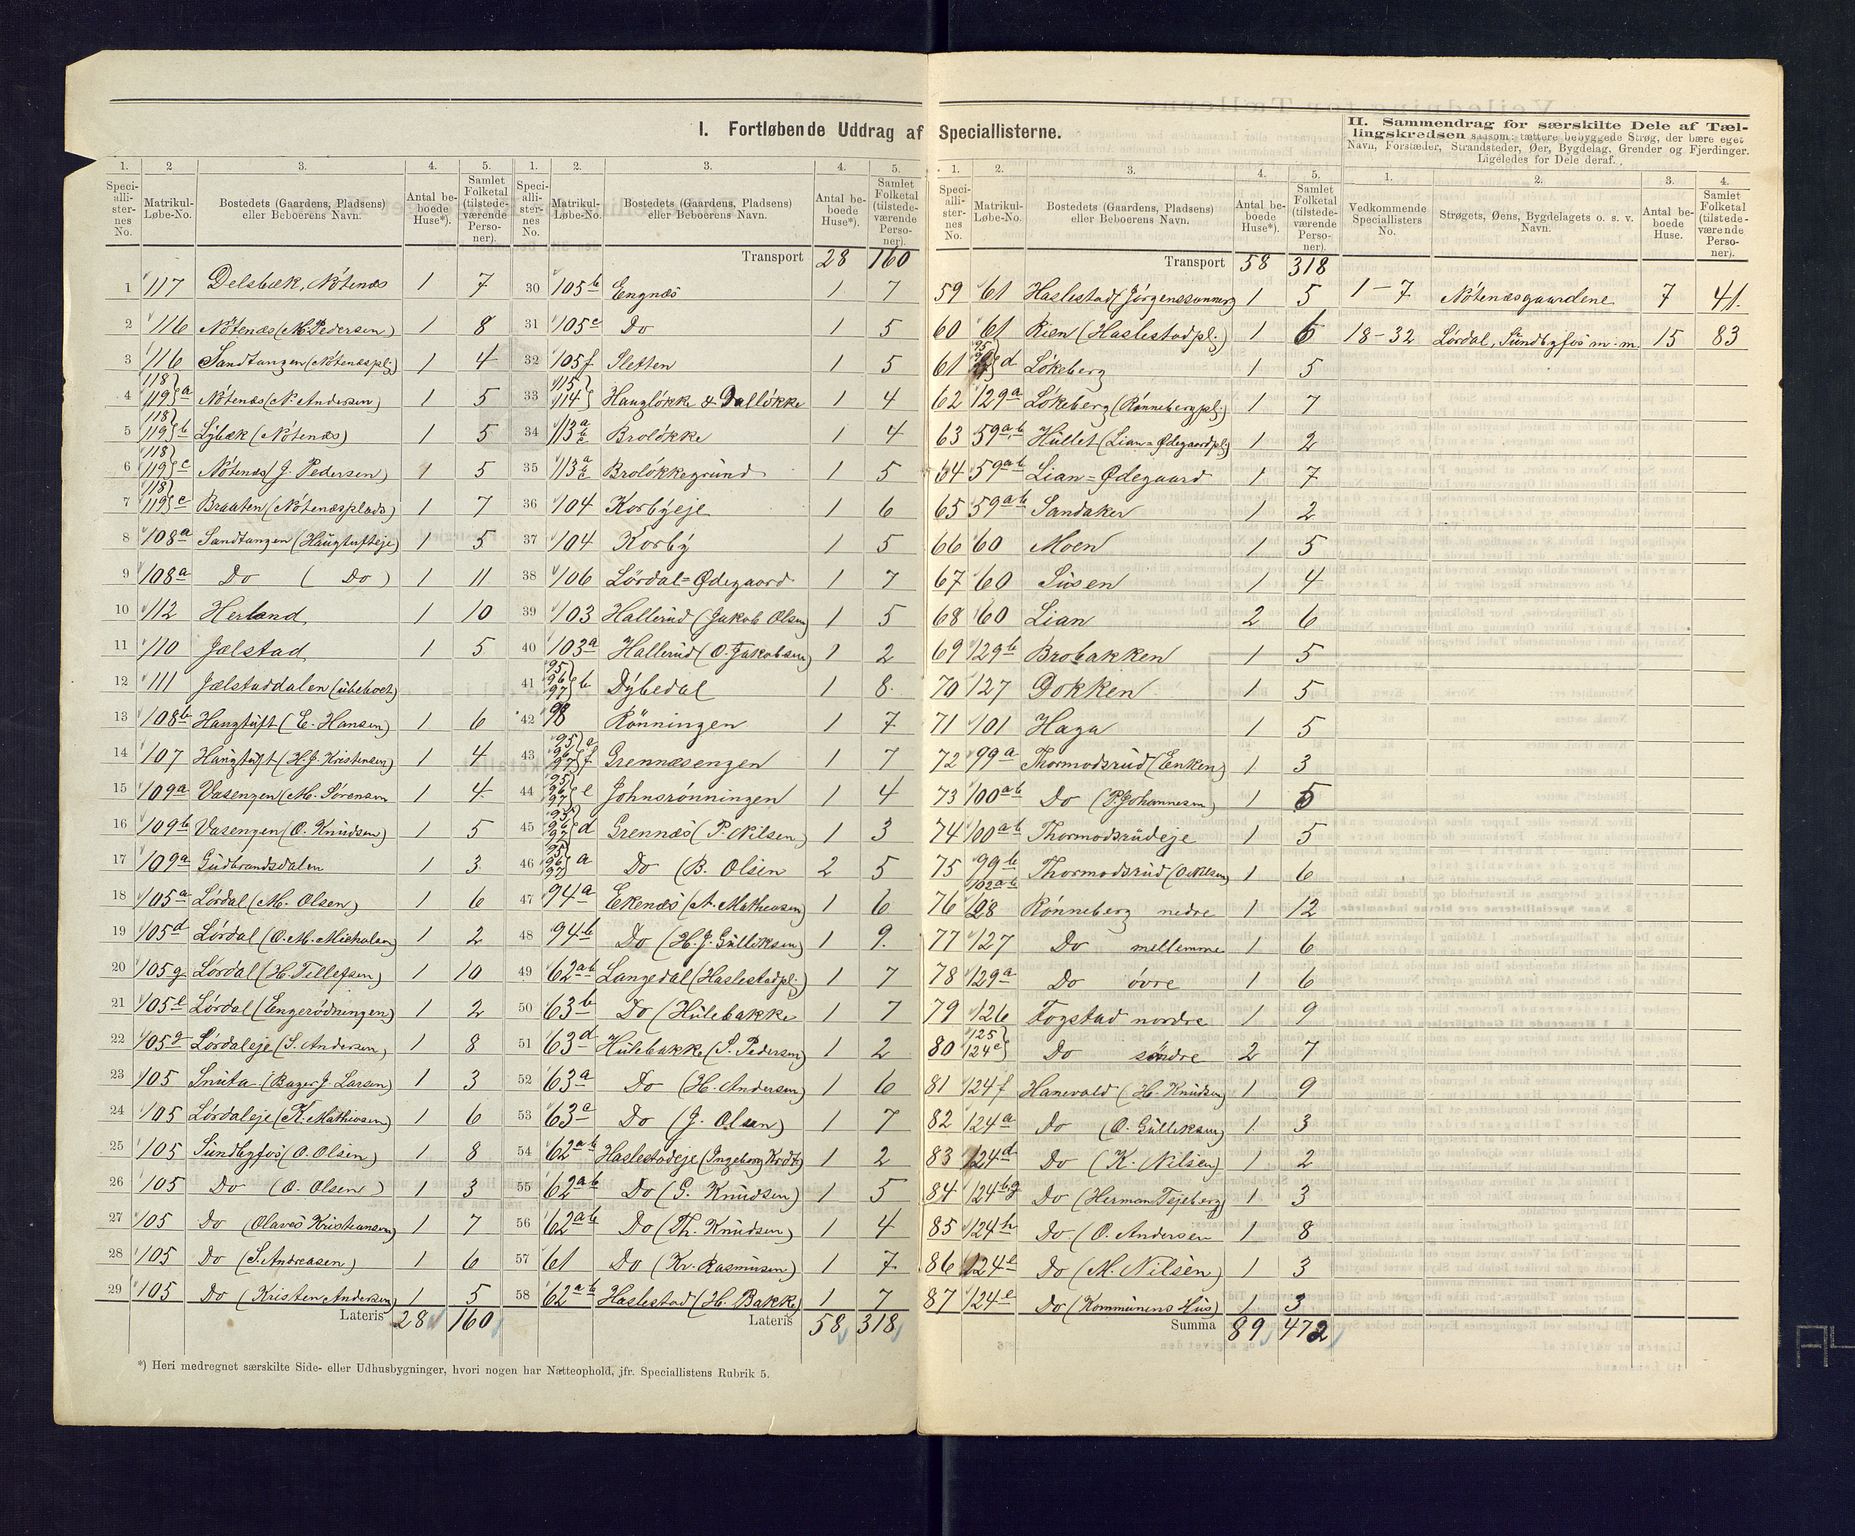 I. Fortløbende Uddrag af Speciallisterne.
1. 2 3. 4. 5.
Speciallisternes No. Matrikul-Løbe-No. Bostedets (Gaardens, Pladsens) eller Beboerens Navn. Antal beboede Huse*). Samlet Folketal (tilstedeværende Personer).
1 117 Delsbæk, Nötenæs 1 7
2 116 Nötenæs (M. Pedersen) 1 8
3 116 Sandtangen (Nötenæspl.) 1 4
4 118 119 a Nötenæs (N. Andersen) 1 5
5 118 119 b Lybæk (Nötenæs) 1 5
6 118 119 c Nötenæs (J. Pedersen) 1 5
7 118 119 c Braaten (Nötenæsplads) 1 7
8 108a Sandtangen (Haugtufteje) 1 5
9 108a Do (Do) 1 11
10 112 Herland 1 10
11 110 Jælstad 1 5
12 111 Jælstaddalen (ubeboet)
13 108b Haugtuft (E. Hansen) 1 6
14 107 Haugtuft (H. J. Kristensen) 1 4
15 109a Vasengen (M. Sørensen 1 4
16 109b Vasengen (O. Knudsen) 1 5
17 109a Gudbrandsdalen 1 3
18 105a Lördal (M. Olsen) 1 6
19 105d Lördal (O. M. Mickalsen) 1 2
20 105g Lördal (H. Tillefsen) 1 10
21 105e Lördal (Engerödningen) 1 2
22 105g Lördaleje (S. Andersen) 1 8
23 105 Snuta (Bager J. Larsen) 1 3
24 105 Lördaleje (K. Mathiesen) 1 6
25 105 Sundbyfos (O. Olsen) 1 8
26 105 Do (O. Olsen) 1 3
27 105 Do (Olaves Kristiansen) 1 7
28 105 Do (S. Andreasen) 1 6
29 105 Do (Kristen Andersen) 1 5
Lateris 28 160
1. 2. 3. 4. 5.
Speciallisternes No. Matrikul-Løbe-No. Bostedets (Gaardens, Pladsens) eller Beboerens Navn. Antal beboede Huse*). Samlet Folketal (tilstedeværende Personer).
Transport 28 160
30 105b Engnæs 1 7
31 105c Do 1 5
32 105f Sletten 1 5
33 115 114 Haugløkke & Dalløkke 1 4
34 113 a Broløkke 1 4
35 113 a Broløkkegrund 1 5
36 104 Korbyeje 1 6
37 104 Korby 1 5
38 106 Lördal=Ødegaard 1 7
39 103 Hallerud (Jakob Olsen) 1 5
40 103a Hallerud (O. Jakobsen) 1 2
41 95 96 97 b Dybedal 1 8
42 98 Rönningen 1 7
43 95 96 97 f Grennæsengen 1 7
44 95 96 97 e Johnsrønningen 1 4
45 95 96 97 d Grennæs (P. Nilsen) 1 3
46 95 96 97 a Do (B. Olsen 2 5
47 94a Ekenæs (A. Mathiesen) 1 6
48 94b Do (H. J. Gulliksen) 1 9
49 62ab Langedal (Haslestadpl.) 1 7
50 63b Do (Hulebakke 1 7
51 63d Hulebakke (S. Pedersen) 1 2
52 63a Do (H. Andersen) 1 6
53 63a Do (J. Olsen) 1 7
54 62ab Haslestadeje (Ingeborg Krdt) 1 2
55 62ab Do (G. Knudsen) 1 5
56 62ab Do (Th. Knudsen) 1 4
57 61 Do (Kr. Rasmusen) 1 7
58 62ab Haslestad (H. Bakke) 1 7
Lateris 58 318
*) Heri medregnet særskilte Side- eller Udhusbygninger, hvori nogen har Natteophold, jfr. Speciallistens Rubrik 5.
1. 2. 3. 4. 5.
Speciallisternes No. Matrikul-Løbe-No. Bostedets (Gaardens, Pladsens) eller Beboerens Navn. Antal beboede Huse*). Samlet Folketal (tilstedeværende Personer).
Transport 58 318
59 61 Haslestad (Jörgenssannerg 1 5
60 61 Rien (Haslestadpl.) 1 6
61 95 d Løkeberg 1 5
62 129a Løkeberg (Rönnebergpl.) 1 7
63 59ab Hullet (Lian=Ødegaardpl) 1 2
64 59ab Lian=Ødegaard 1 7
65 59ab Sandaker 1 2
66 60 Moen 1 5
67 60 Susen 1 4
68 60 Lian 2 6
69 129b Brobakken 1 5
70 127 Dokken 1 5
71 101 Haga 1 5
72 99a Thormodsrud (Enken) 1 3
73 100ab Do (P. Johannesen) 1 5
74 100ab Thormodsrudeje 1 5
75 99b Thormodsrud (O. Nilsen) 1 6
76 102ab 128 Rønneberg nedre 1 12
77 127 Do mellemme 1 6
78 129a Do övre 1 6
79 126 Fogstad nordre 1 9
80 125 124c Do søndre 2 7
81 124f Hanevald (H. Knudsen) 1 9
82 124a Do (O. Gulliksen) 1 3
83 124d Do (K. Nilsen) 1 2
84 124bg Do (Herman Tejeberg) 1 3
85 124h Do (O. Andersen 1 8
86 124e Do (M. Nilsen) 1 3
87 124e Do (Kommunens Hus) 1 3
Summa 89 472
II. Sammendrag for særskilte Dele af Tællingskredsen saasom: tættere bebyggede Strøg, der bære eget Navn, Forstæder, Strandsteder, Øer, Bygdelag, Grender og Fjerdinger. Ligeledes for Dele deraf.
1. 2. 3. 4.
Vedkommende Speciallisters No. Strøgets, Øens, Bygdelagets o. s. v. Navn. Antal beboede Huse. Samlet Folketal (tilstedeværende Personer).
1-7 Nötenæsgaardene 7 41.
18-32 Lördal, Sundbyfos m. m. 15 83